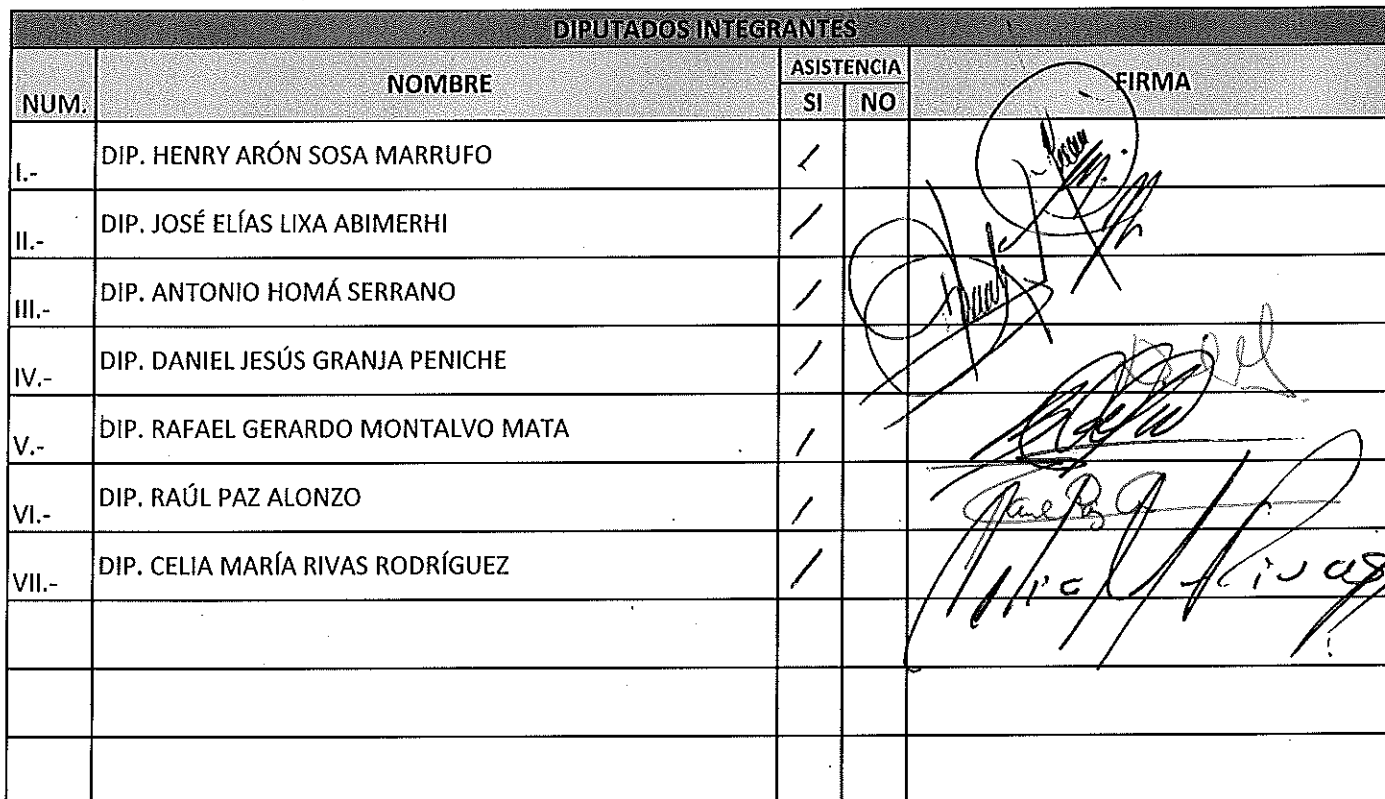 DIPUTADOS INTEGRANTES
NUM. NOMBRE ASISTENCIA FIRMA
SI NO
I.- DIP. HENRY ARÓN SOSA MARRUFO /
II.- DIP. JOSÉ ELÍAS LIXA ABIMERHI /
III.- DIP. ANTONIO HOMÁ SERRANO /
IV.- DIP. DANIEL JESÚS GRANJA PENICHE /
V.- DIP. RAFAEL GERARDO MONTALVO MATA /
VI.- DIP. RAÚL PAZ ALONZO /
VII.- DIP. CELIA MARÍA RIVAS RODRÍGUEZ / Rivas